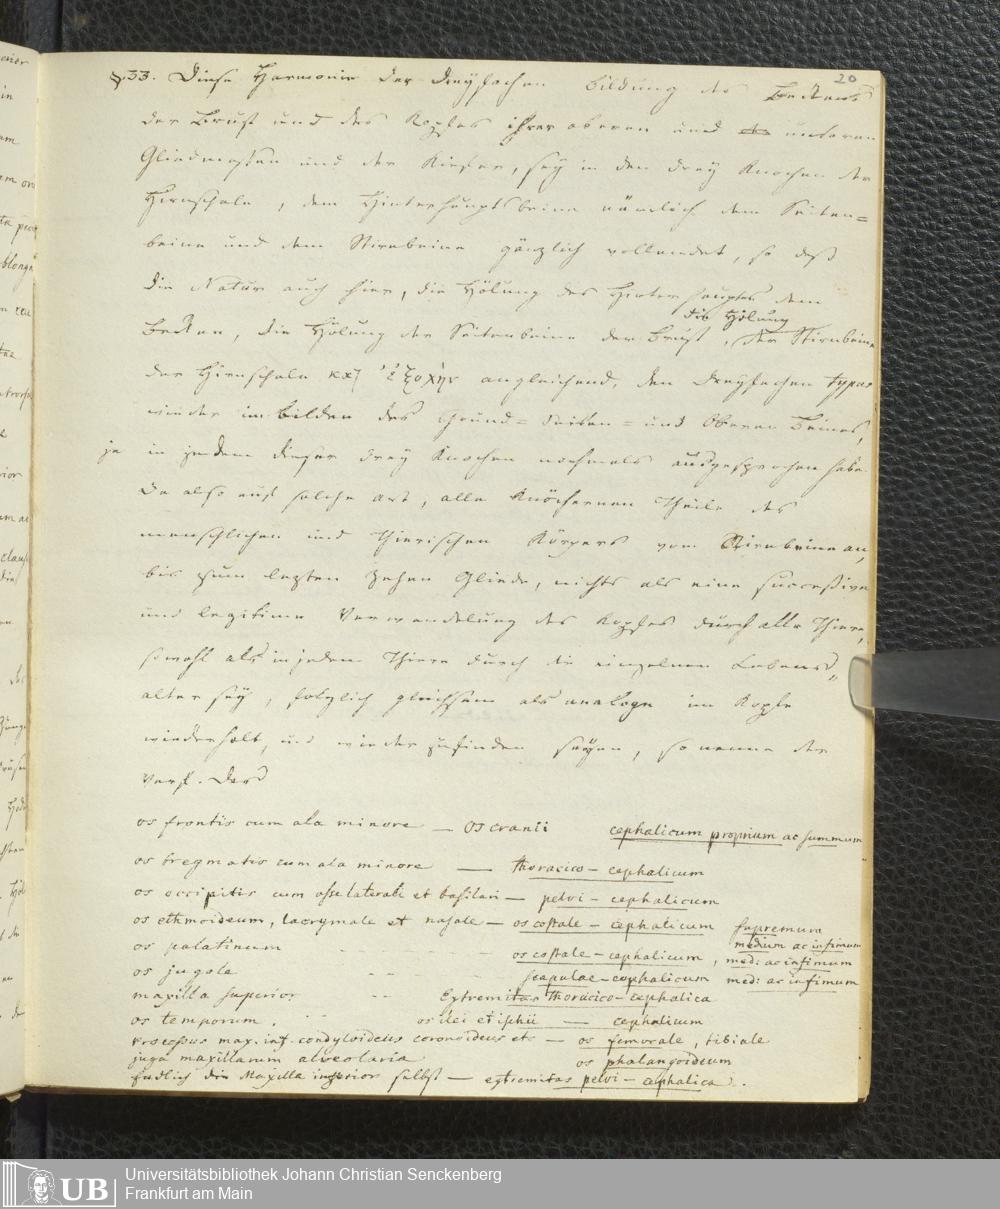 20
§.33. Diese Harmonie der dreyfachen Bildung des Beckens
der Brust und des Kopfes ihrer oberen und unteren
Gliedmassen und der Kiefer, sey in den drey Knochen der
Hirnschale, dem Hinterhauptsbeine nämlich dem Seiten=
beine und dem Stirnbeine gänzlich vollendet, so daß
die Natur auch hier, die Hölung des Hinterhauptes dem
die Hölung
Becken, die Hölung der Seitenbeine der Brust, der Stirnbeine
der Hirnschale κατ ἐξοχὴν angleichend, den dreyfachen typus
wieder im bilden des Grund= Seiten= und Oberen Beines,
ja in jedem dieser drey Knochen nochmals ausgesprochen habe.
Da also auf solche art, alle Knöchernen Theile des
menschlichen und thierischen Körpers vom Stirnbeine an,
bis zum lezten Zehen Gliede, nichts als eine successive
und legitime Verwandelung des Kopfes durch alle Thiere,
sowohl als in jedem Thiere durch die einzelnen Lebens„
alter sey, folglich gleichsam als analoge im Kopfe
wiederholt, und wieder zufinden seyen, so nenne der
Verf. das
os frontis cum ala minore — os cranii cephalicum proprium ac summum
os bregmatis cum ala minore — thoracico-cephalicum
os occipitis cum osse laterali et basilari — pelvi-cephalicum
os ethmoideum, lacrymale et nasale — os costale-cephalicum supremum
os palatinum - - - os costale-cephalicum, medium ac infimum
med: ac infimum
os jugale - - scapulae-cephalicum med: ac infimum
maxilla superior - - Extremitas thoracico-cephalica
os temporum. - os ilei et ischii — cephalicum
processus max. inf. condyloideus coronoideus etc — os femorale, tibiale
juga maxillarum alveolaria os phalangoideum
Endlich die Maxilla inferior selbst — extremitas pelvi-cephalica.
UB
Universitätsbibliothek Johann Christian Senckenberg
Frankfurt am Main